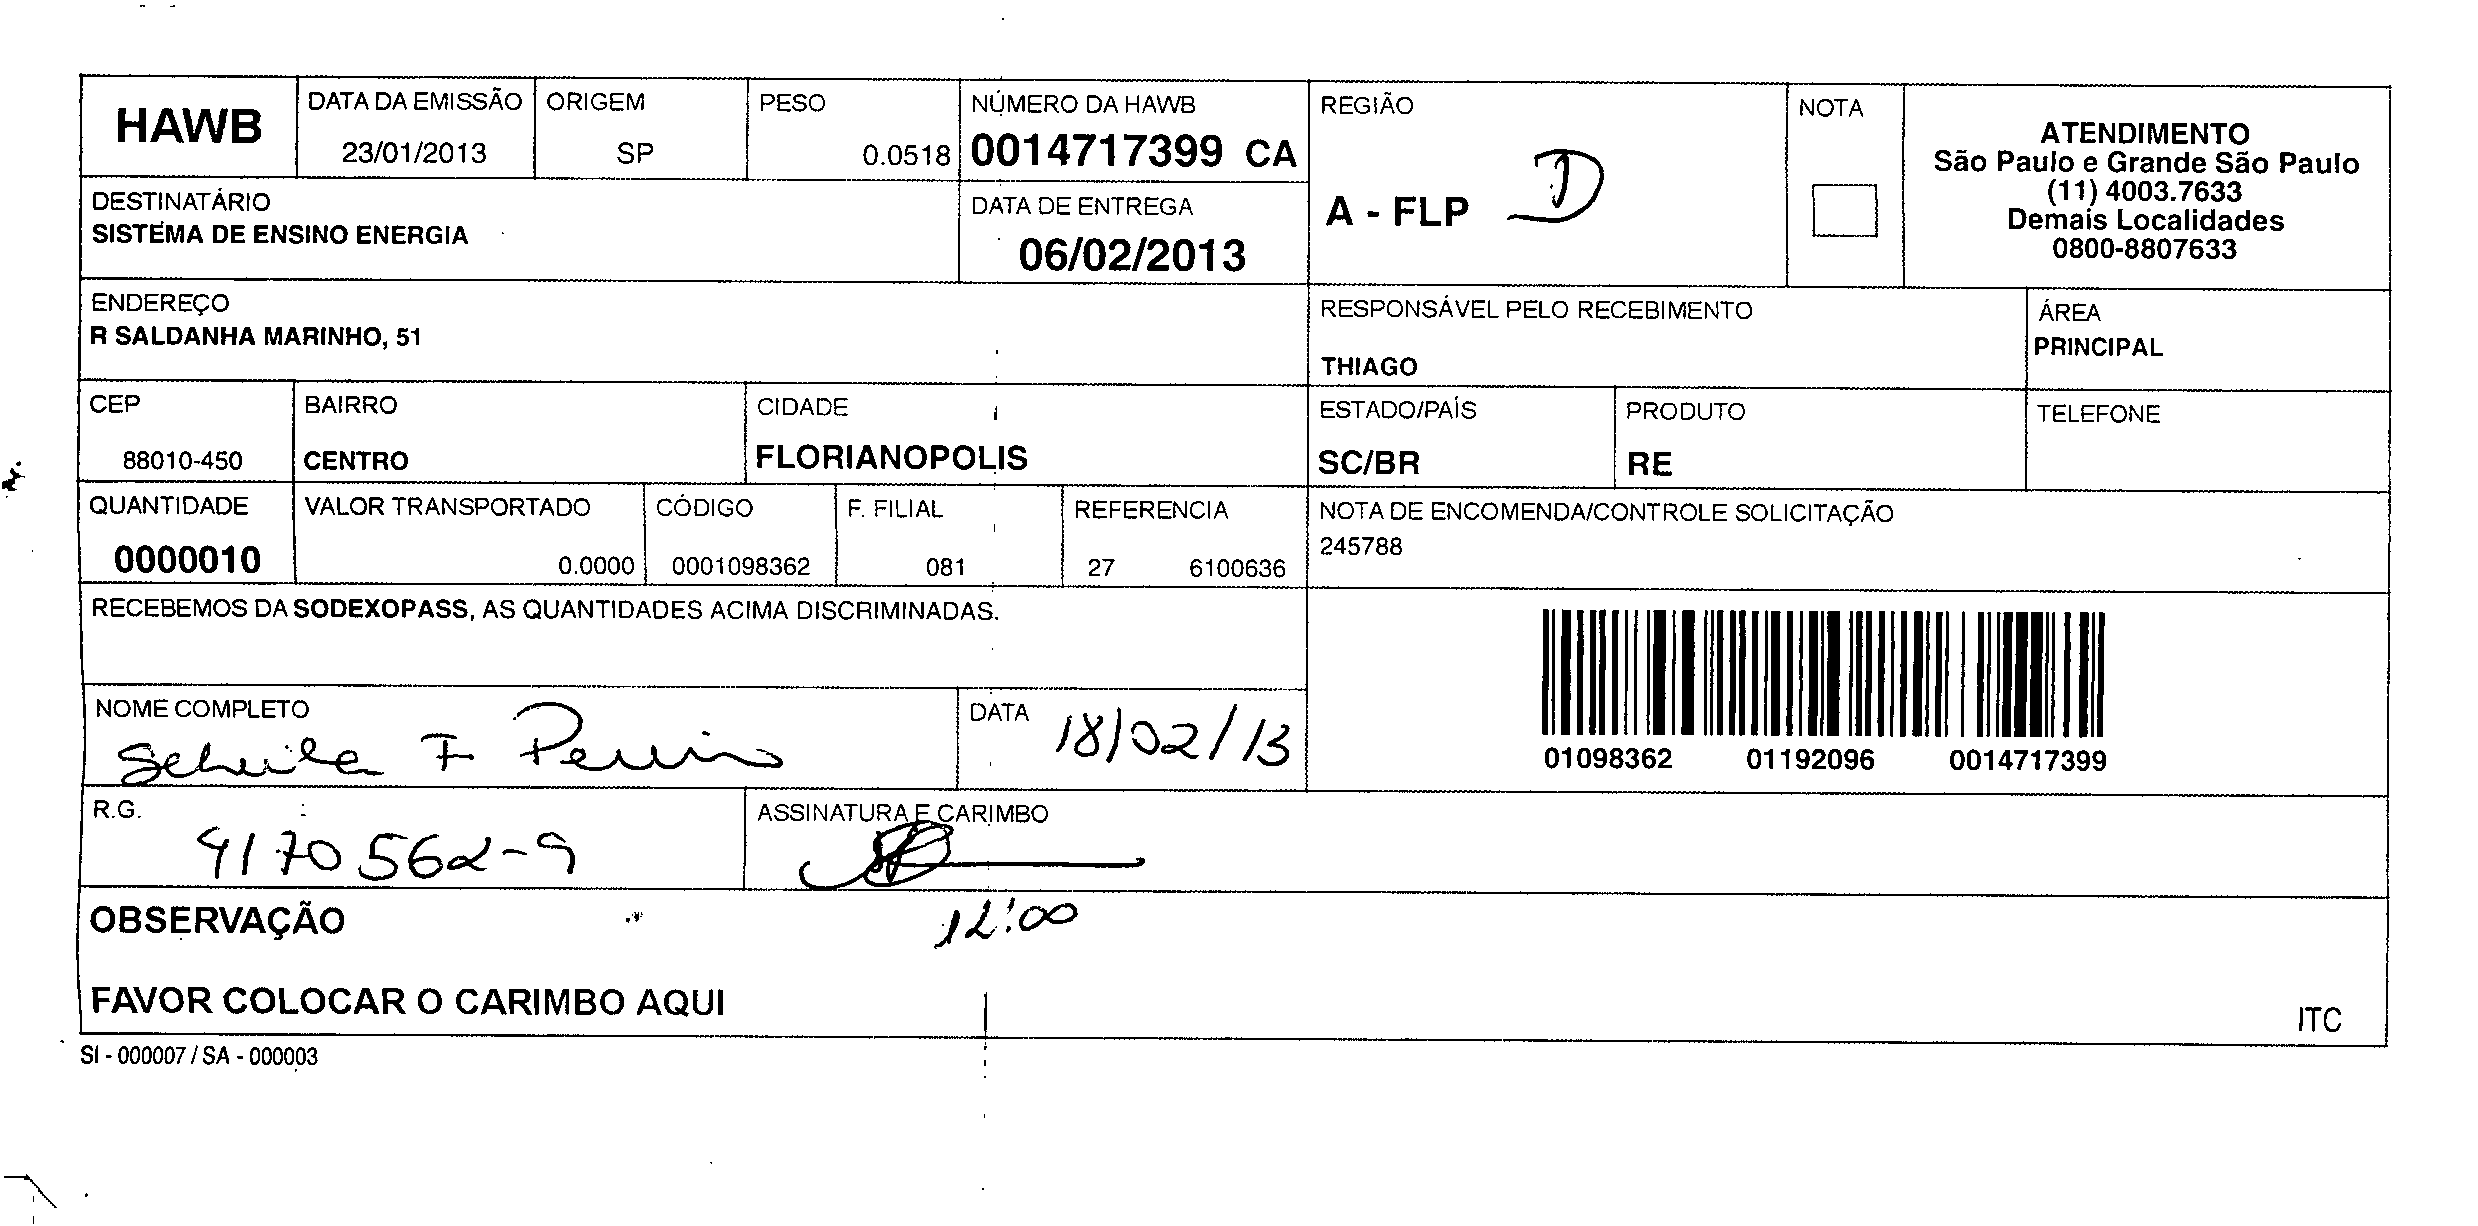 HAWB
DATA DA EMISSÃO
23/01/2013
ORIGEM
SP
PESO
0.0518
NÚMERO DA HAWB
0014717399 CA
REGIÃO
A - FLP D
NOTA
ATENDIMENTO
São Paulo e Grande São Paulo
(11) 4003.7633
Demais Localidades
0800-8807633
DESTINATÁRIO
SISTEMA DE ENSINO ENERGIA
DATA DE ENTREGA
06/02/2013
ENDEREÇO
R SALDANHA MARINHO, 51
RESPONSÁVEL PELO RECEBIMENTO
THIAGO
ÁREA
PRINCIPAL
CEP
88010-450
BAIRRO
CENTRO
CIDADE
FLORIANOPOLIS
ESTADO/PAÍS
SC/BR
PRODUTO
RE
TELEFONE
QUANTIDADE
0000010
VALOR TRANSPORTADO
0.0000
CÓDIGO
0001098362
F. FILIAL
081
REFERENCIA
27 6100636
NOTA DE ENCOMENDA/CONTROLE SOLICITAÇÃO
245788
RECEBEMOS DA SODEXOPASS, AS QUANTIDADES ACIMA DISCRIMINADAS.
01098362 01192096 0014717399
NOME COMPLETO
F
DATA
18/02/13
R.G.
4170562-9
ASSINATURA E CARIMBO
OBSERVAÇÃO
12:00
FAVOR COLOCAR O CARIMBO AQUI
ITC
SI - 000007 / SA - 000003